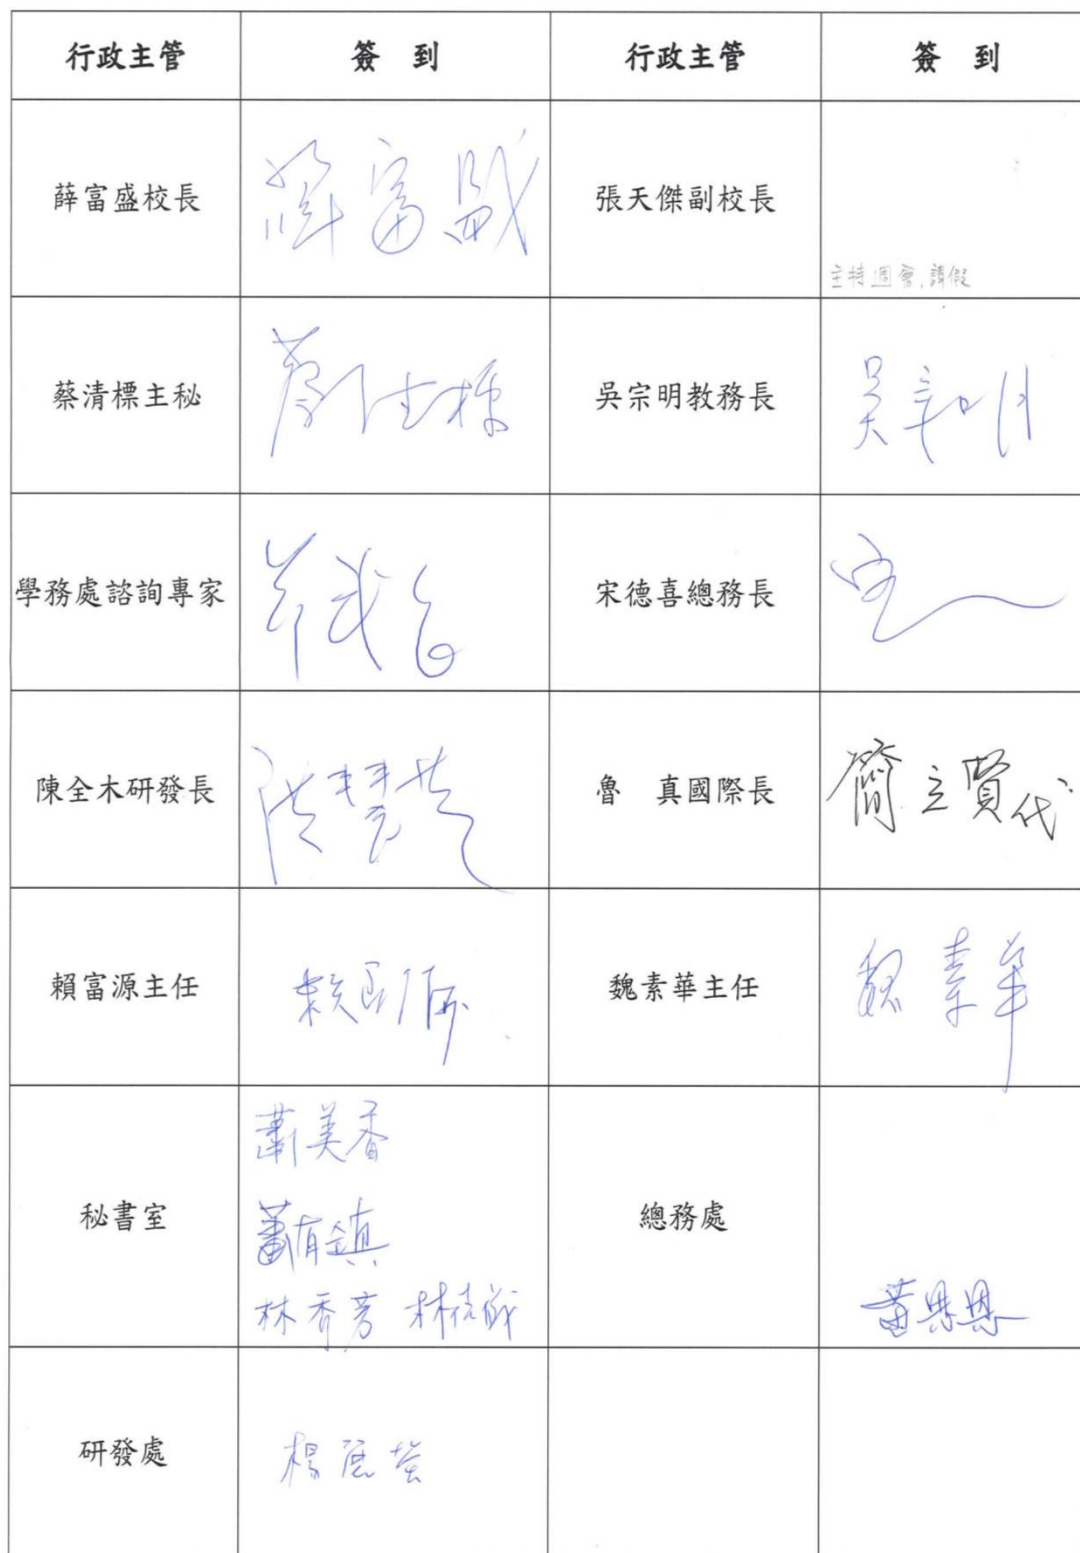 行政主管 簽 到 行政主管 簽 到
薛富盛校長 薛富盛 張天傑副校長
主持週會,請假
蔡清標主秘 蔡清標 吳宗明教務長 吳宗明
學務處諮詢專家 宋德喜總務長 宋
陳全木研發長 洪慧芝 魯 真國際長 簡立賢代
賴富源主任 賴富源 魏素華主任 魏素華
蕭美香
秘書室 蕭有鎮 總務處
林秀芳
研發處